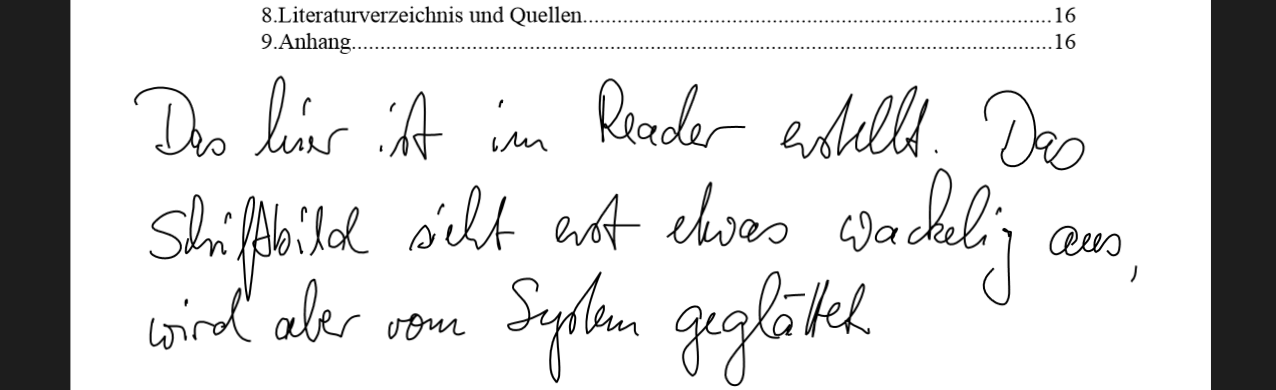 8.Literaturverzeichnis und Quellen...................................................................................16
9.Anhang............................................................................................................................16
Das hier ist im Reader erstellt. Das
Schriftbild sieht erst etwas wackelig aus,
wird aber vom System geglättet